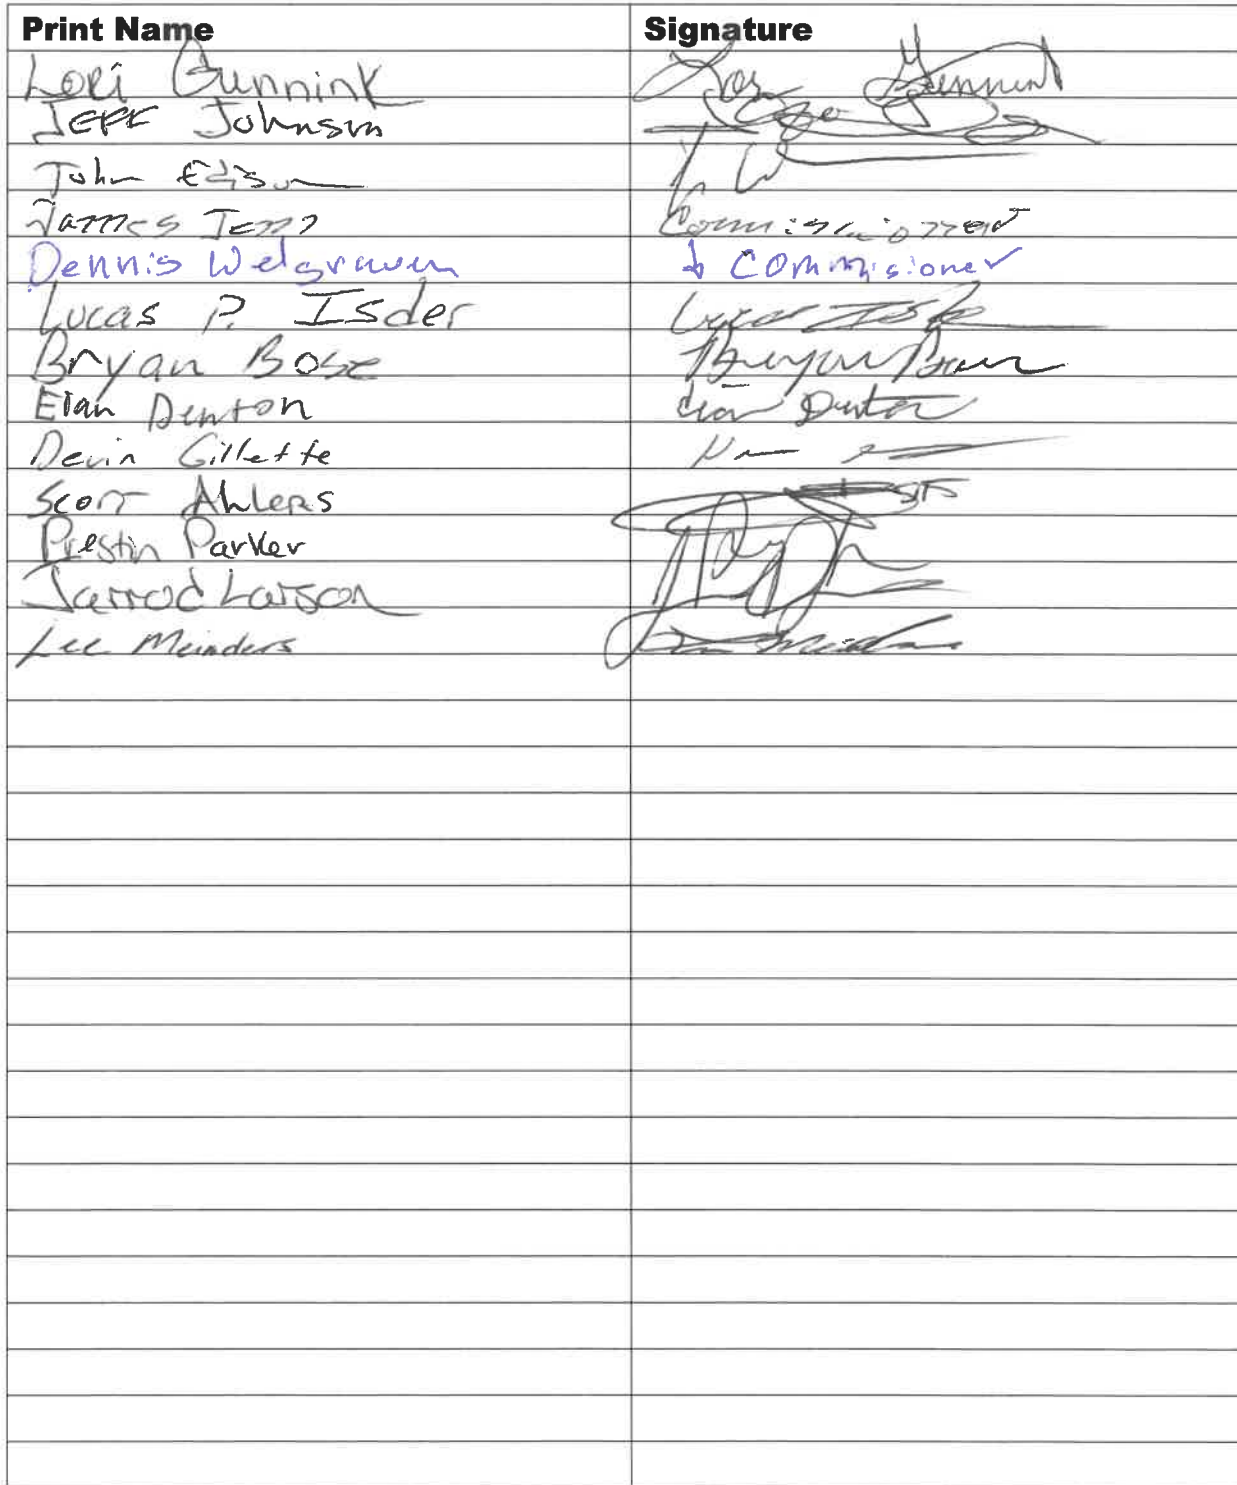 Print Name Signature
Lori Gunnink Lori Gunnink
JEFF Johnson
John Edison
James Jens Commissioner
Dennis Welgraven Commisioner
Lucas P. Isder
Bryan Bose Bryan
Etan Denton Denton
Devin Gillette
Scott Ahlers
Prestin Parker
Jarrod Larson
Lee Meinders Lee Meinders